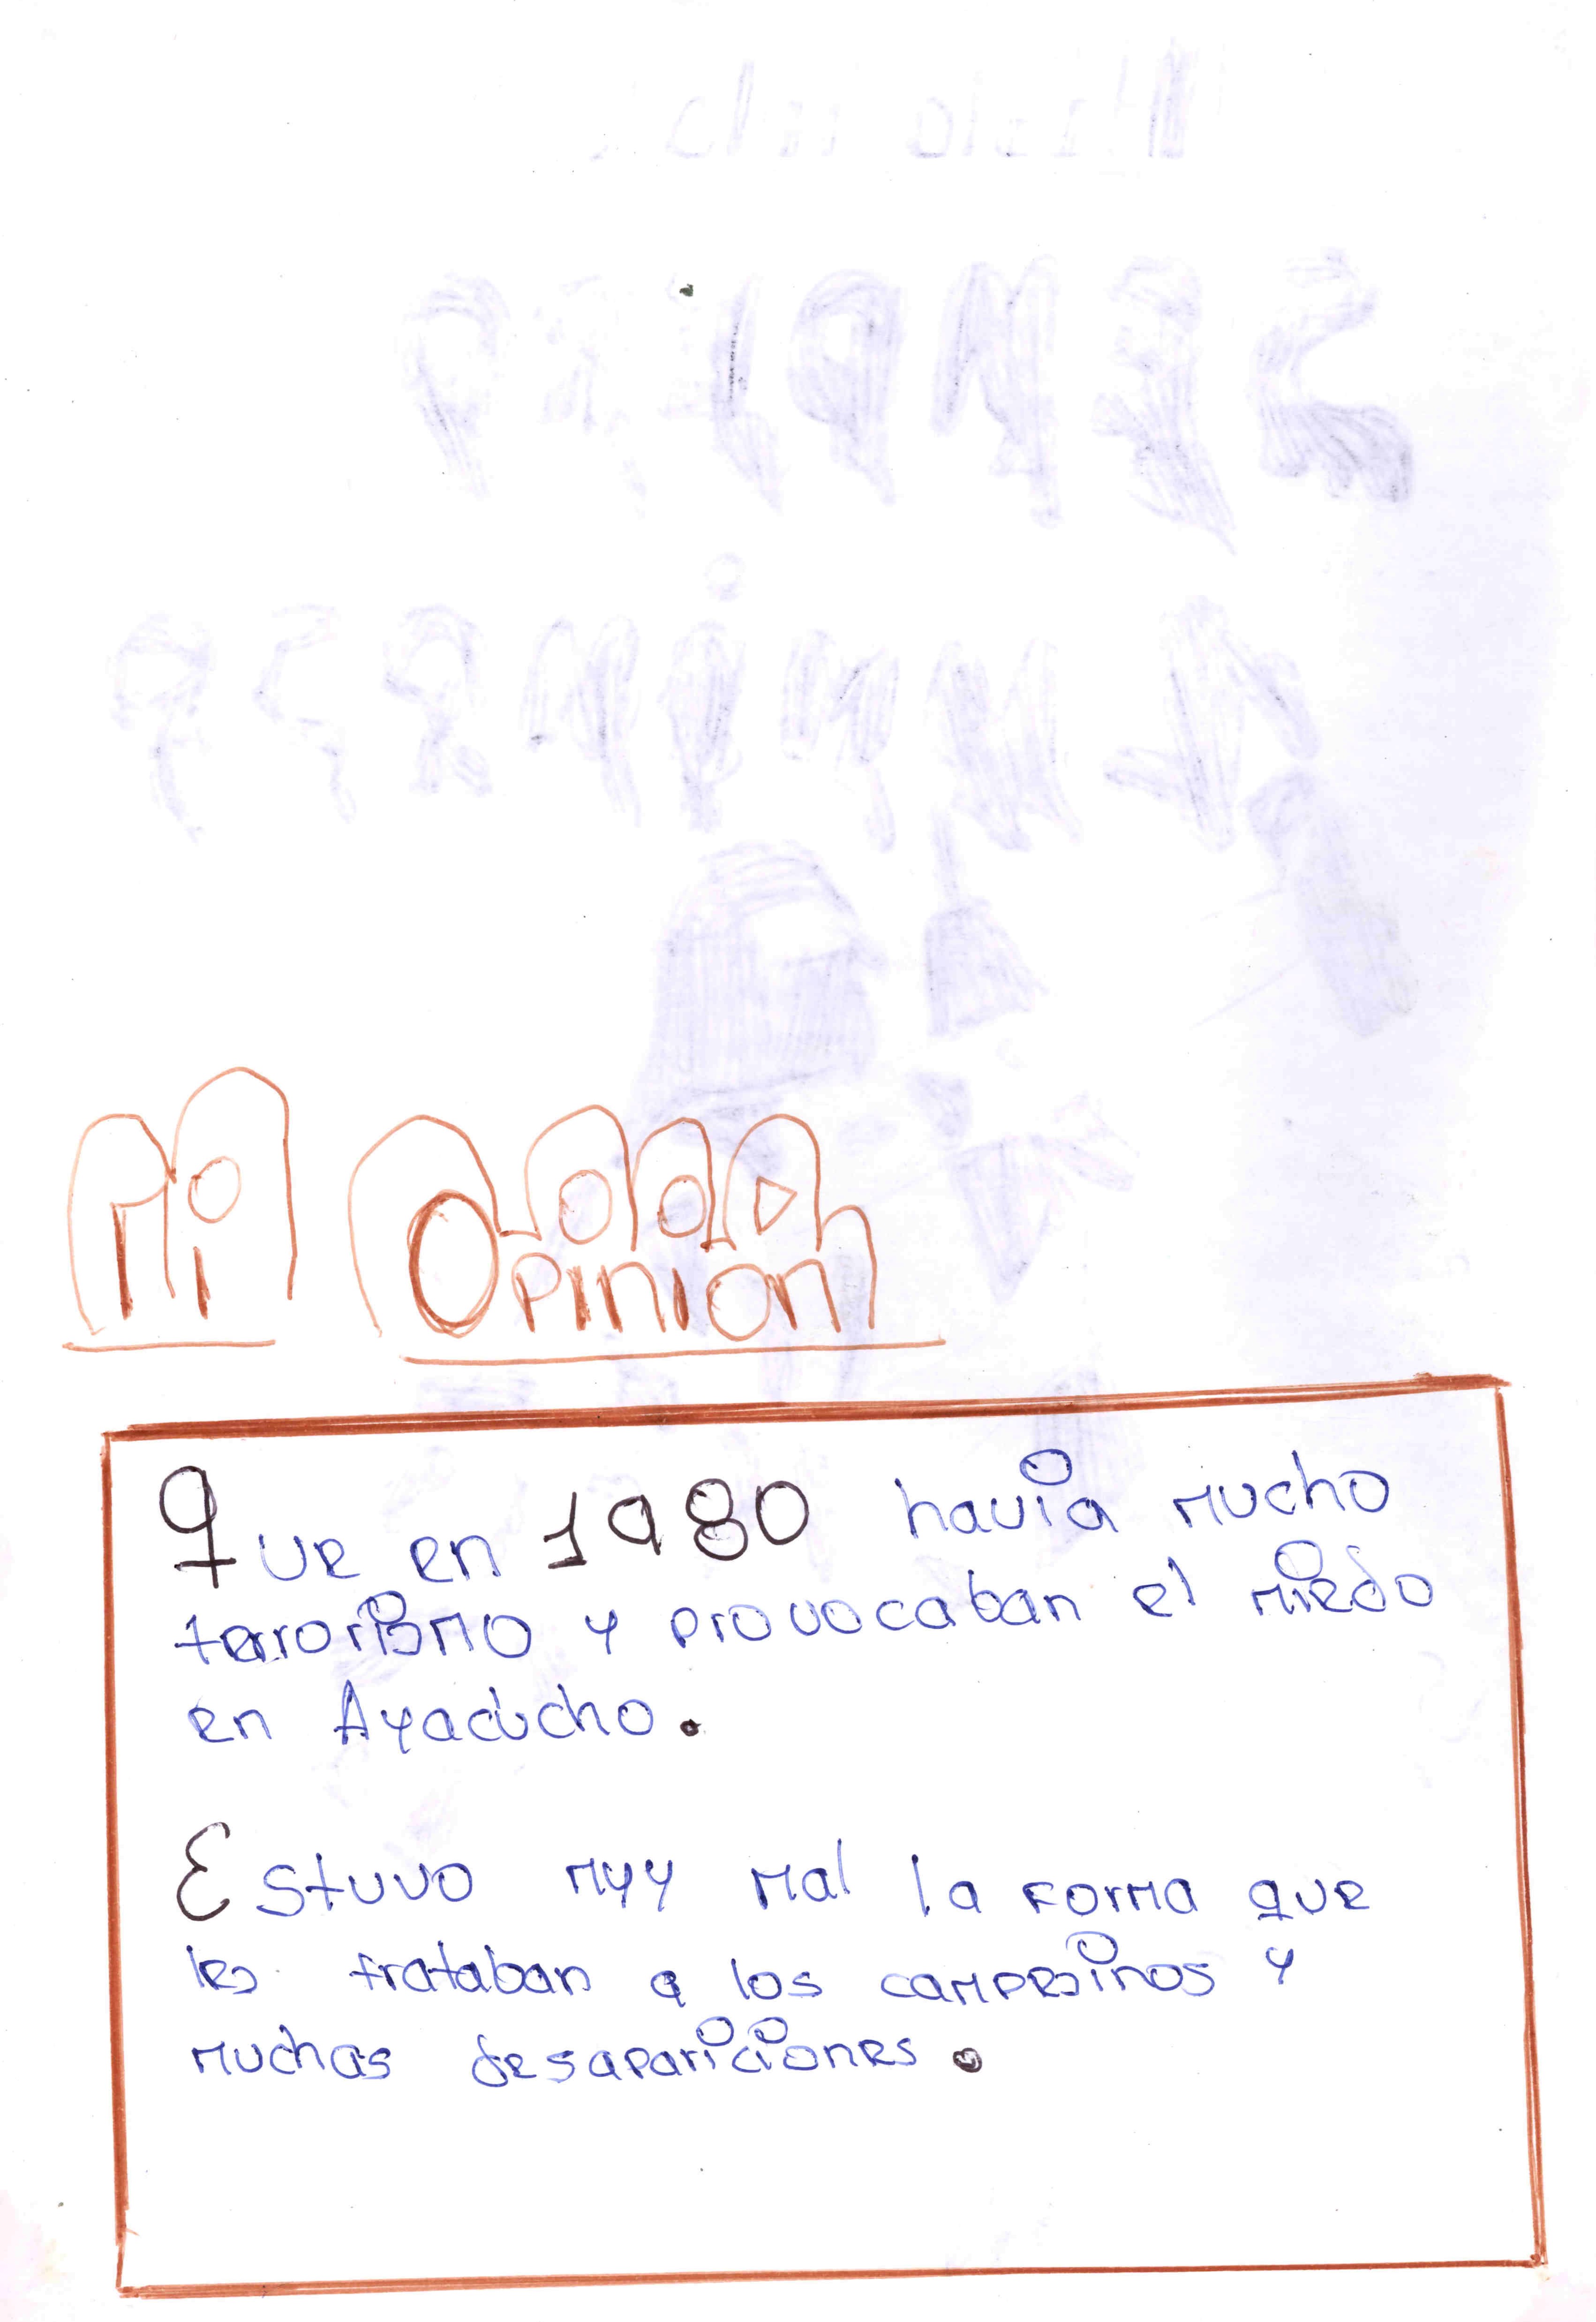 Mi Opinion
Que en 1980 havia mucho
terrorismo y provocaban el miedo
en Ayacucho.
Estuvo myy mal la forma que
les trataban a los campesinos y
muchas desapariciones.